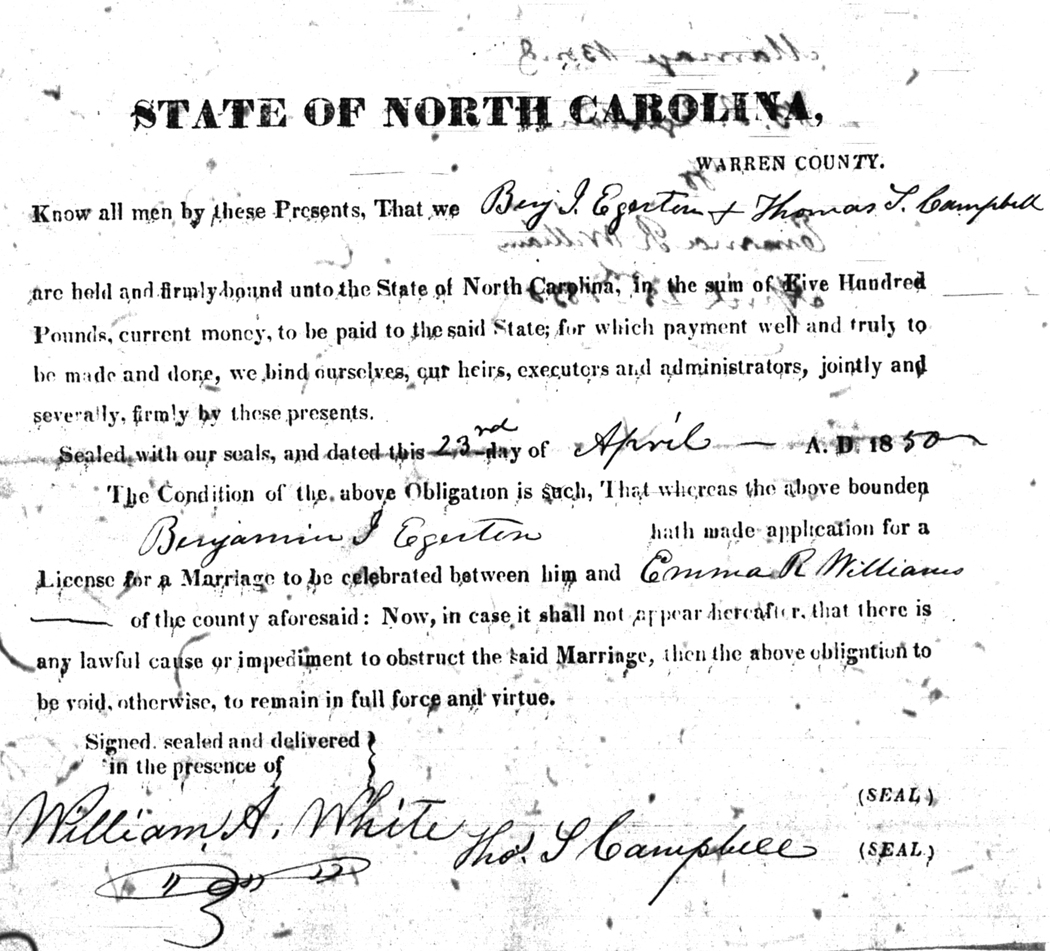 STATE OF NORTH CAROLINA,
WARREN COUNTY.
Know all men by these Presents, That we Benj I. Egerton & Thomas S. Campbell
are held and firmly bound unto the State of North Carolina, in the sum of Five Hundred
Pounds, current money, to be paid to the said State; for which payment well and truly to
be made and done, we bind ourselves, our heirs, executors and administrators, jointly and
severally, firmly by these presents.
Sealed with our seals, and dated this 23rd day of April — A. D. 1850
The Condition of the above Obligation is such, That whereas the above bounden
Benjamin I Egerton hath made application for a
License for a Marriage to be celebrated between him and Emma R Williams
— of the county aforesaid: Now, in case it shall not appear hereafter, that there is
any lawful cause or impediment to obstruct the said Marriage, then the above obligation to
be void, otherwise, to remain in full force and virtue.
Signed, sealed and delivered
in the presence of
(SEAL)
William A. White Thos. S Campbell (SEAL)